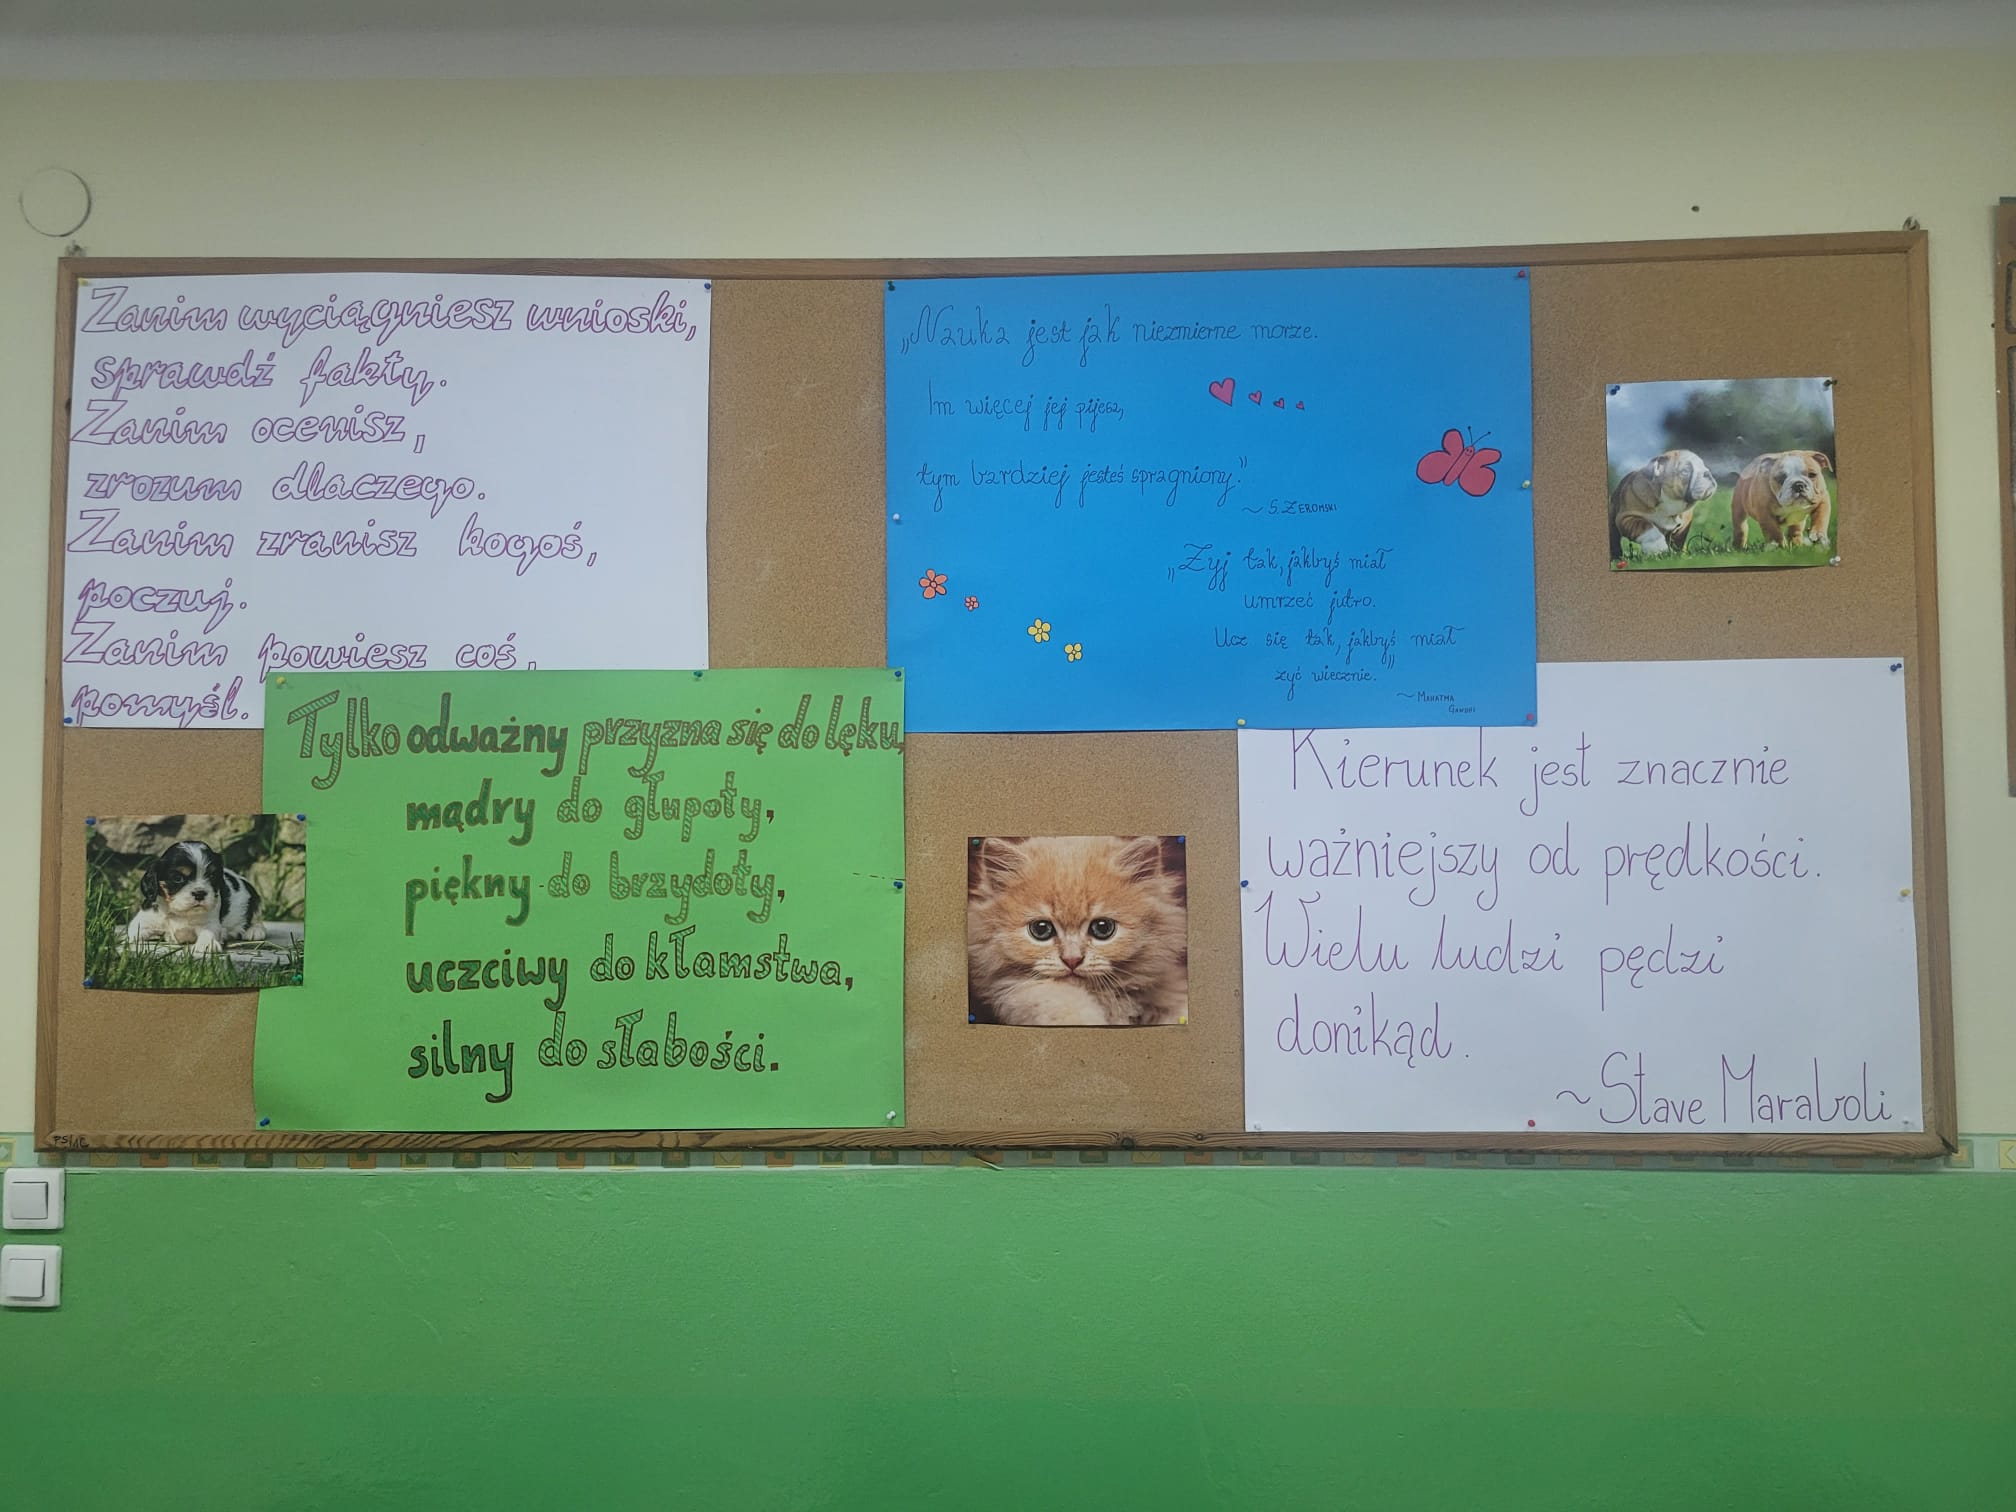 Zanim wyciągniesz wnioski,
sprawdź fakty.
Zanim ocenisz,
zrozum dlaczego.
Zanim zranisz kogoś,
poczuj.
Zanim powiesz coś,
pomyśl.
Tylko odważny przyzna się do lęku,
mądry do głupoty,
piękny do brzydoty,
uczciwy do kłamstwa,
silny do słabości.
„Nauka jest jak niezmierne morze.
Im więcej jej pijesz,
tym bardziej jesteś spragniony."
~ S. ŻEROMSKI
„Żyj tak, jakbyś miał
umrzeć jutro.
Ucz się tak, jakbyś miał
żyć wiecznie."
~ MAHATMA
GANDHI
Kierunek jest znacznie
ważniejszy od prędkości.
Wielu ludzi pędzi
donikąd.
~Stave Maraboli